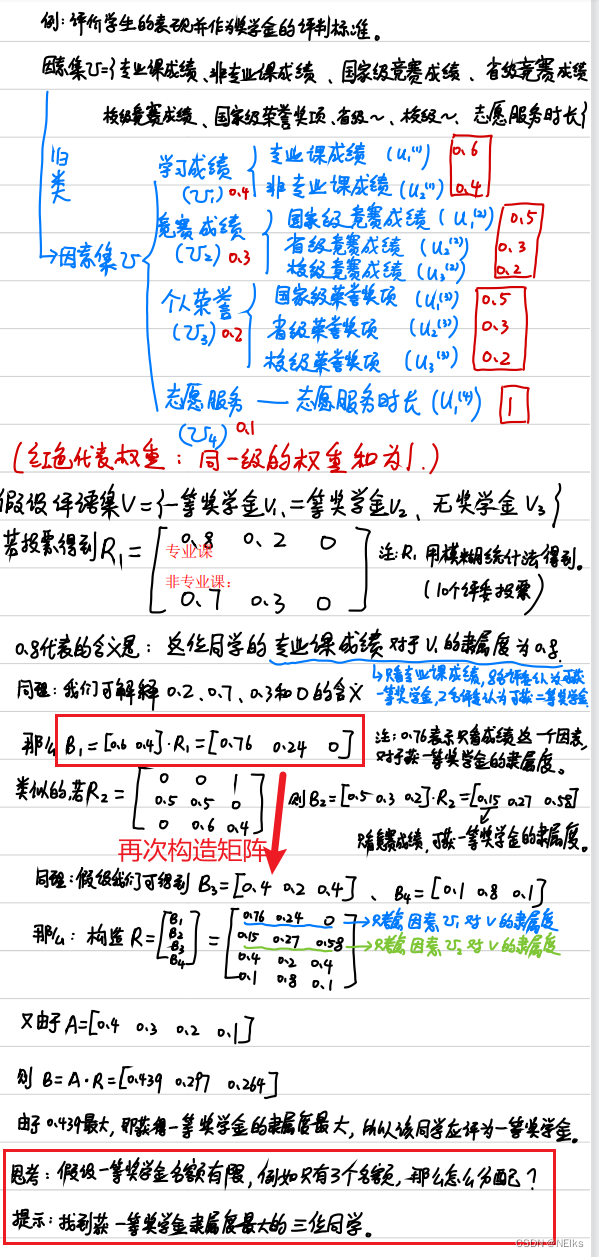 例:评价学生的表现并作为奖学金的评判标准。
因素集U={专业课成绩、非专业课成绩、国家级竞赛成绩、省级竞赛成绩
校级竞赛成绩、国家级荣誉奖项、省级~、校级~、志愿服务时长}
归类
→因素集U
学习成绩 (U₁) 0.4
专业课成绩 (u₁⁽¹⁾) 0.6
非专业课成绩 (u₂⁽¹⁾) 0.4
竞赛成绩 (U₂) 0.3
国家级竞赛成绩 (u₁⁽²⁾) 0.5
省级竞赛成绩 (u₂⁽²⁾) 0.3
校级竞赛成绩 (u₃⁽²⁾) 0.2
个人荣誉 (U₃) 0.2
国家级荣誉奖项 (u₁⁽³⁾) 0.5
省级荣誉奖项 (u₂⁽³⁾) 0.3
校级荣誉奖项 (u₃⁽³⁾) 0.2
志愿服务 — 志愿服务时长 (u₁⁽⁴⁾) 1
(U₄) 0.1
(红色代表权重:同一级的权重和为1.)
假设评语集V={一等奖学金V₁、二等奖学金V₂、无奖学金V₃}
若投票得到R₁= [0.8 0.2 0
0.7 0.3 0]
专业课
非专业课:
注:R₁用模糊统计法得到。
(10个评委投票)
0.8代表的含义是:这位同学的专业课成绩对于V₁的隶属度为0.8.
↳只看专业课成绩,8名评委认为可获
一等奖学金,2名评委认为可获二等奖学金
同理:我们可解释0.2、0.7、0.3和0的含义
那么B₁=[0.6 0.4]·R₁=[0.76 0.24 0]
注:0.76表示只看成绩这一个因素,
对于获一等奖学金的隶属度。
类似的,若R₂= [0 0 1
0.5 0.5 0
0 0.6 0.4]
则B₂=[0.5 0.3 0.2]·R₂=[0.15 0.27 0.58]
只看竞赛成绩,可获一等奖学金的隶属度。
再次构造矩阵
同理:假设我们可得到B₃=[0.4 0.2 0.4]、B₄=[0.1 0.8 0.1]
那么:构造R= [B₁
B₂
B₃
B₄] = [0.76 0.24 0
0.15 0.27 0.58
0.4 0.2 0.4
0.1 0.8 0.1]
→只考虑因素U₁对V的隶属度
→只考虑因素U₂对V的隶属度
又由于A=[0.4 0.3 0.2 0.1]
则B=A·R=[0.439 0.297 0.264]
由于0.439最大,那获得一等奖学金的隶属度最大,所以该同学应评为一等奖学金。
思考:假设一等奖学金名额有限,例如只有3个名额,那么怎么分配?
提示:找到获一等奖学金隶属度最大的三位同学。
CSDN @NEIks